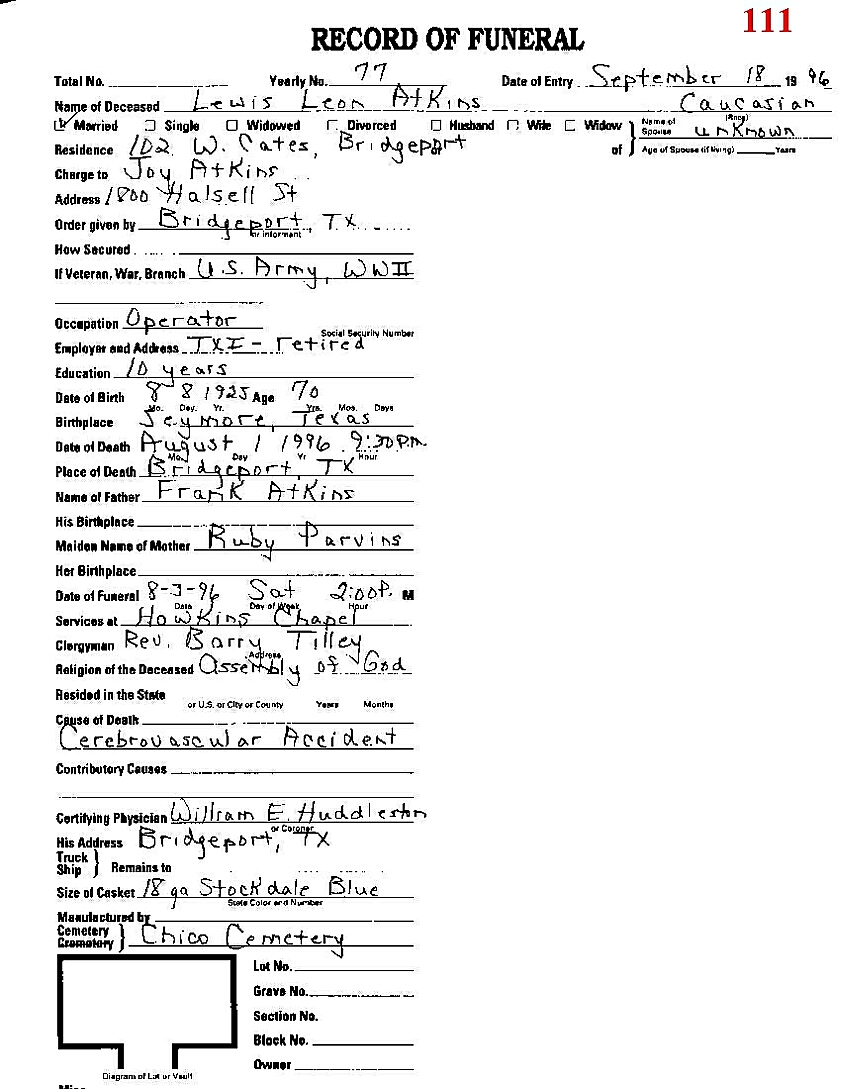 111
RECORD OF FUNERAL
Total No. Yearly No. 77 Date of Entry September 18 1996
Name of Deceased Lewis Leon Atkins Caucasian
(Race)
Married Single Widowed Divorced Husband Wife Widow of Name of Spouse unknown
Residence 102 W. Cates, Bridgeport Age of Spouse (if living) Years
Charge to Joy Atkins
Address 1800 Halsell St
Order given by Bridgeport, TX
or Informant
How Secured
If Veteran, War, Branch U.S. Army, WWII
Occupation Operator
Social Security Number
Employer and Address TXI - retired
Education 10 years
Date of Birth 8 8 1925 Age 70
Mo. Day. Yr. Yrs. Mos. Days
Birthplace Seymore, Texas
Date of Death August 1 1996 9:30 P.M.
Mo. Day Yr Hour
Place of Death Bridgeport, TX
Name of Father Frank Atkins
His Birthplace
Maiden Name of Mother Ruby Parvins
Her Birthplace
Date of Funeral 8-3-96 Sat 2:00 P. M
Date Day of Week Hour
Services at Hawkins Chapel
Clergyman Rev. Barry Tilley
Address
Religion of the Deceased Assembly of God
Resided in the State
or U.S. or City or County Years Months
Cause of Death
Cerebrovascular Accident
Contributory Causes
Certifying Physician William E. Huddleston
or Coroner
His Address Bridgeport, TX
Truck
Ship Remains to
Size of Casket 18 ga Stockdale Blue
State Color and Number
Manufactured by
Cemetery
Crematory Chico Cemetery
Lot No.
Grave No.
Section No.
Block No.
Owner
Diagram of Lot or Vault